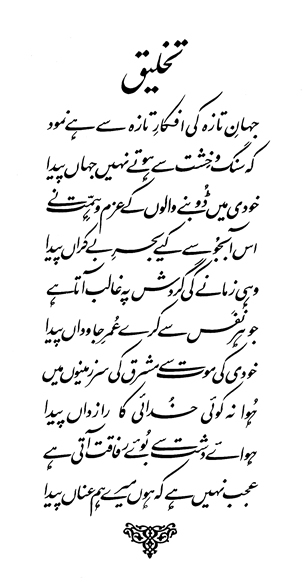 تخلیق
جہانِ تازہ کی افکارِ تازہ سے ہے نمود
کہ سنگ و خشت سے ہوتے نہیں جہاں پیدا
خودی میں ڈوبنے والوں کے عزم و ہمت نے
اس آبجو سے کیے بحرِ بے کراں پیدا
وہی زمانے کی گردش پہ غالب آتا ہے
جو ہر نفس سے کرے عمرِ جاوداں پیدا
خودی کی موت سے مشرق کی سرزمینوں میں
ہوا نہ کوئی خدائی کا رازداں پیدا
ہوائے دشت سے بوئے رفاقت آتی ہے
عجب نہیں ہے کہ ہوں میرے ہم عناں پیدا